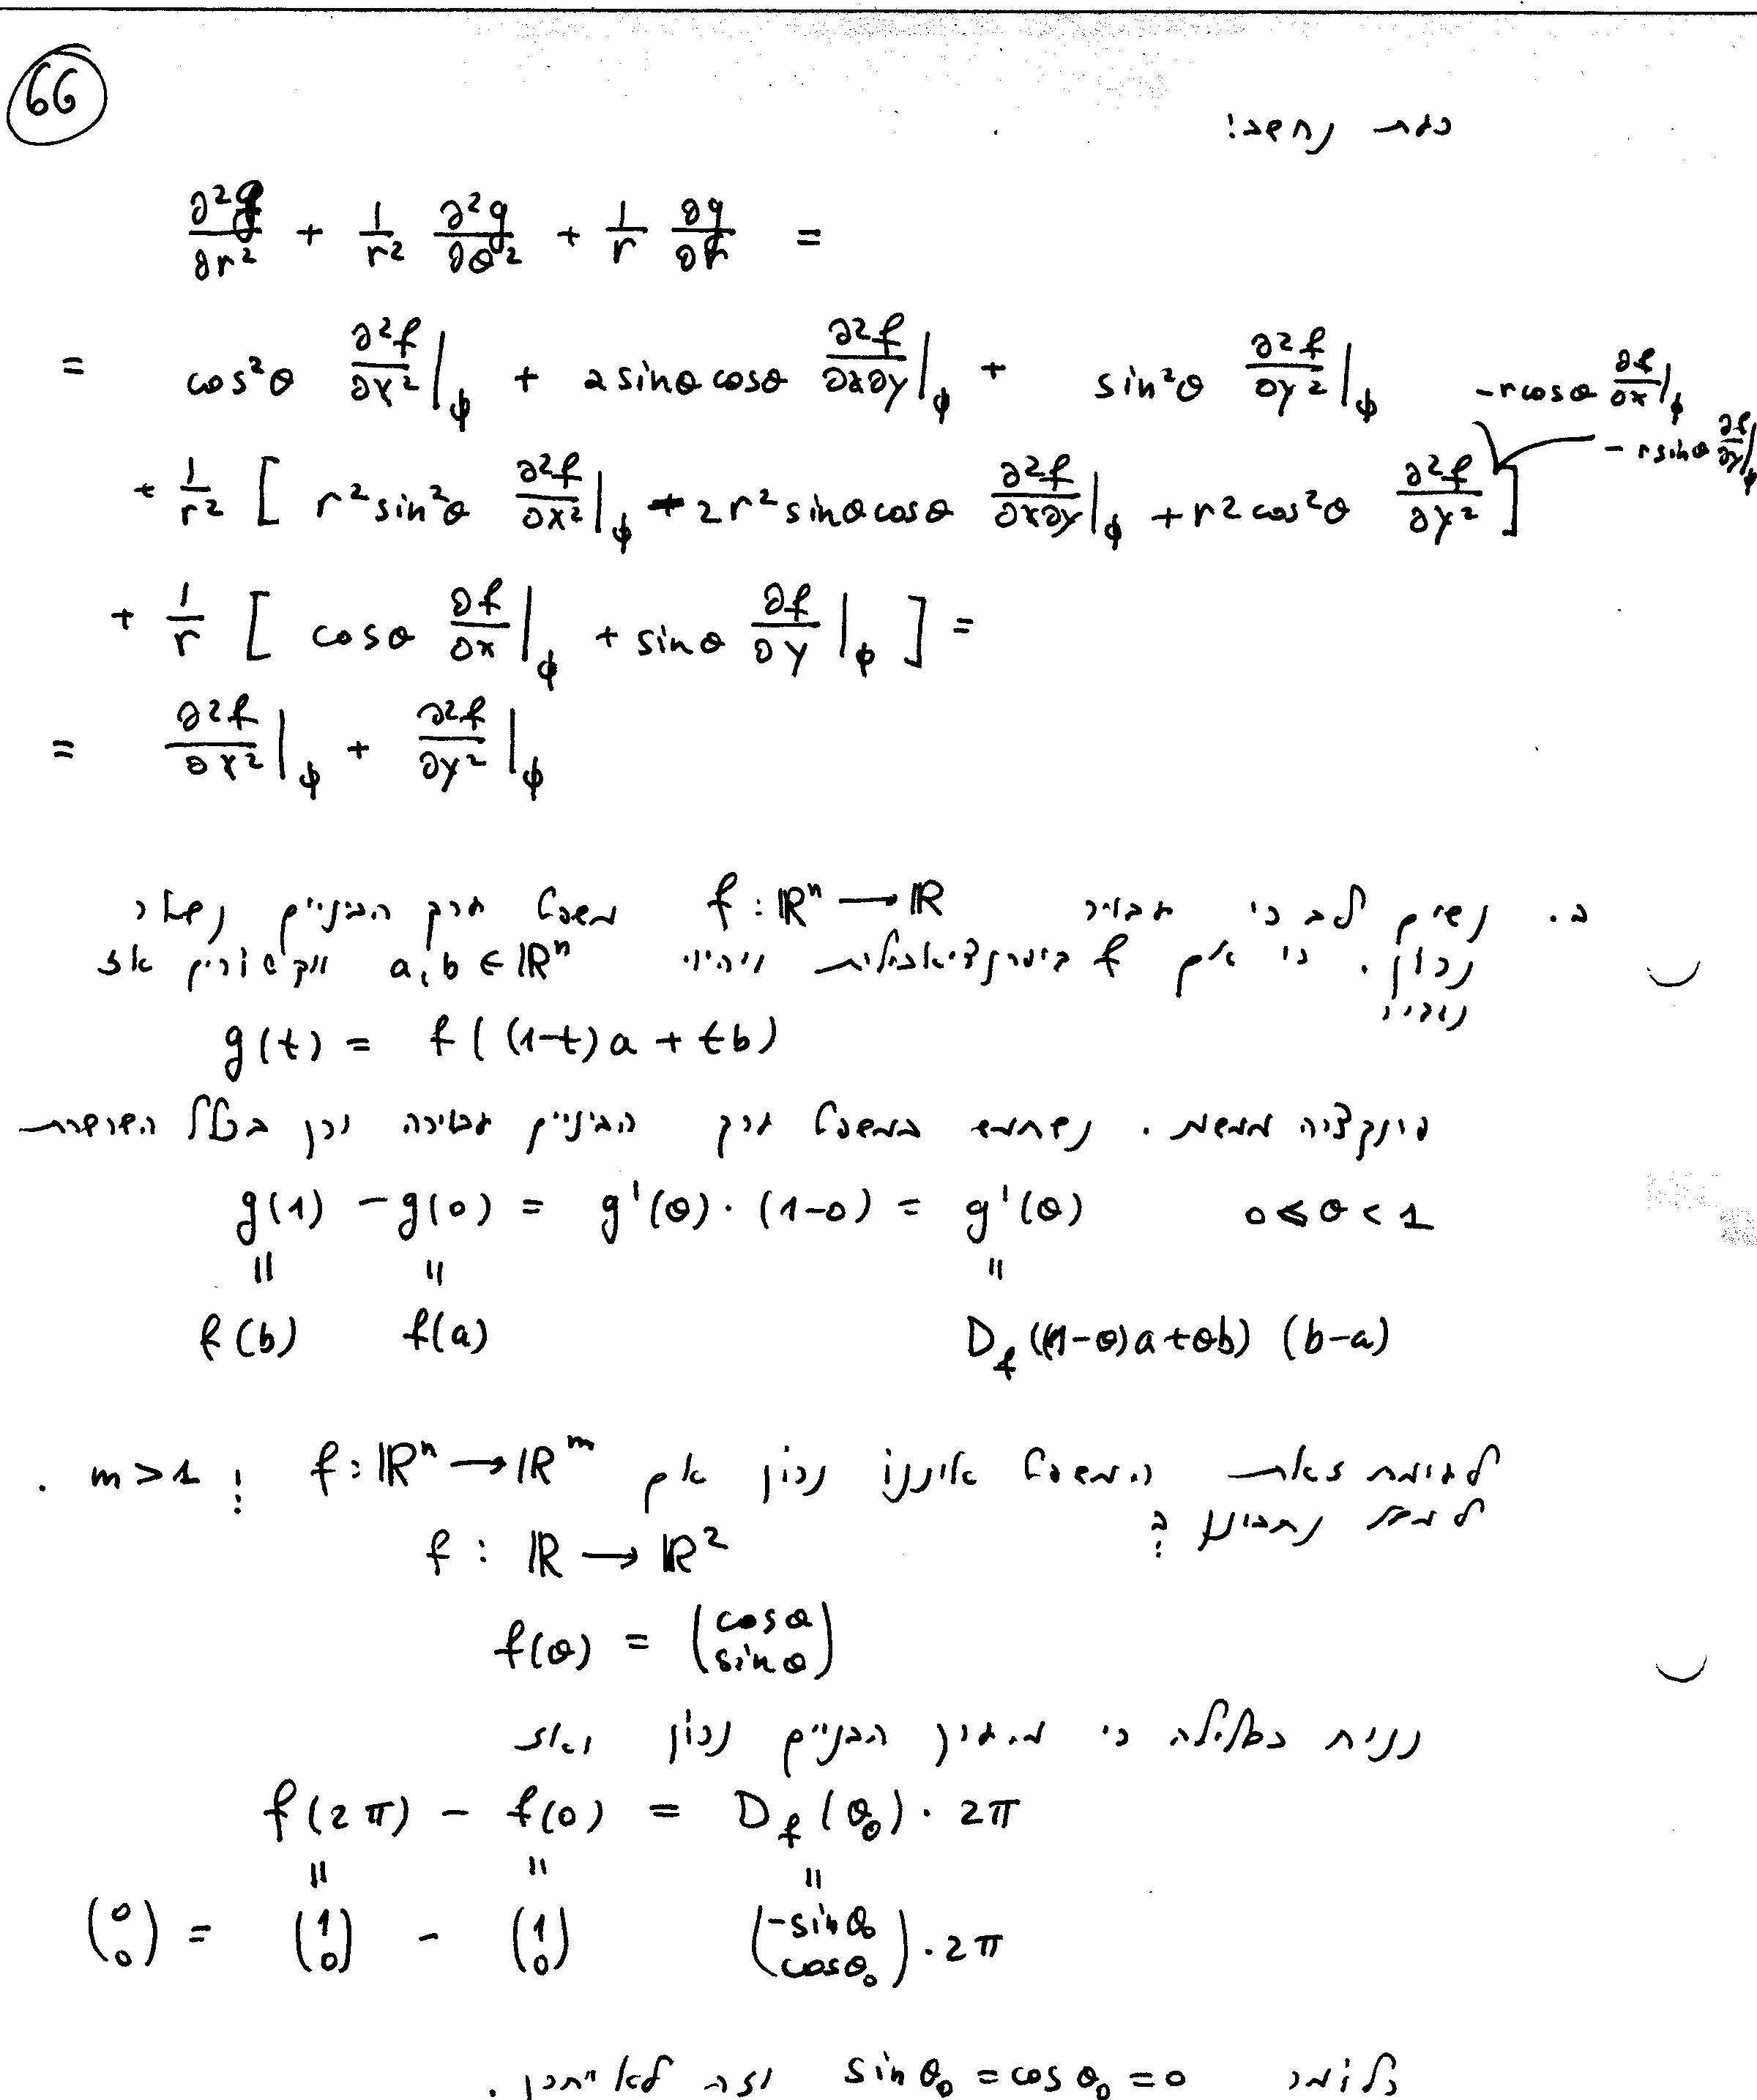 66
כעת נחשב:
∂²g/∂r² + 1/r² ∂²g/∂θ² + 1/r ∂g/∂r =
= cos²θ ∂²f/∂x²|φ + 2 sinθ cosθ ∂²f/∂x∂y|φ + sin²θ ∂²f/∂y²|φ
-r cosθ ∂f/∂x|φ
- r sinθ ∂f/∂y|φ
+ 1/r² [ r² sin²θ ∂²f/∂x²|φ - 2r² sinθ cosθ ∂²f/∂x∂y|φ + r² cos²θ ∂²f/∂y² ]
+ 1/r [ cosθ ∂f/∂x|φ + sinθ ∂f/∂y|φ ] =
= ∂²f/∂x²|φ + ∂²f/∂y²|φ
ב. נשים לב כי עבור f : ℝⁿ → ℝ משפט ערך הביניים נשאר
נכון. כי אם f דיפרנציאבילית ויהיו a, b ∈ ℝⁿ וקטורים אז
נגדיר
g(t) = f((1-t)a + tb)
פונקציה ממשית. נשתמש במשפט ערך הביניים עבורה וכן בכלל השרשרת
g(1) - g(0) = g'(θ)·(1-0) = g'(θ) 0 ≤ θ < 1
|| || ||
f(b) f(a) D_f((1-θ)a+θb) (b-a)
לעומת זאת המשפט איננו נכון אם f : ℝⁿ → ℝᵐ ; m > 1 .
למשל נתבונן ב:
f : ℝ → ℝ²
f(θ) = (cosθ sinθ)
נניח בשלילה כי מ. ערך הבניים נכון ואז
f(2π) - f(0) = D_f(θ₀)·2π
|| || ||
(0 0) = (1 0) - (1 0) (-sinθ₀ cosθ₀)·2π
כלומר sinθ₀ = cosθ₀ = 0 וזה לא ייתכן.